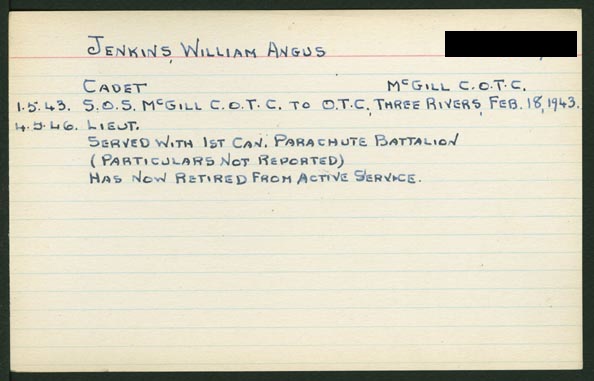 JENKINS, WILLIAM ANGUS
CADET McGILL C.O.T.C.
1.5.43. S.O.S. McGILL C.O.T.C. TO O.T.C., THREE RIVERS, FEB. 18, 1943.
4.5.46. LIEUT.
SERVED WITH 1ST CAN. PARACHUTE BATTALION
(PARTICULARS NOT REPORTED)
HAS NOW RETIRED FROM ACTIVE SERVICE.